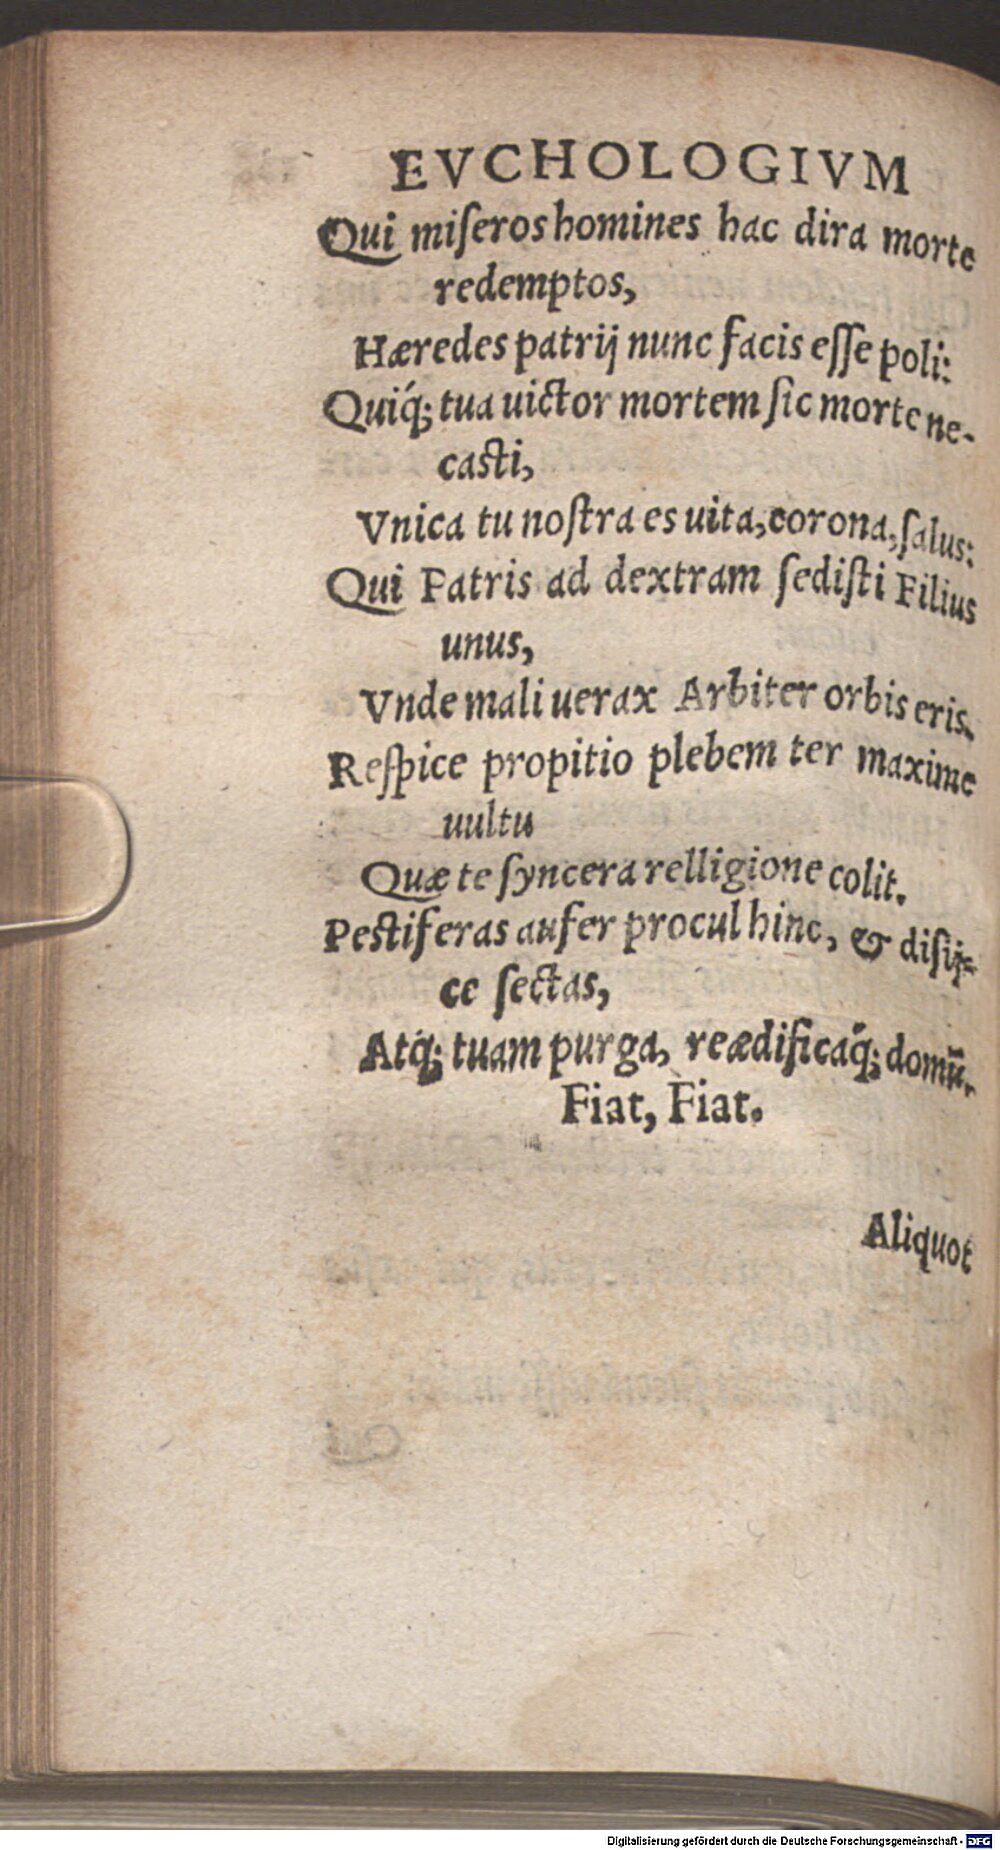 EVCHOLOGIVM
Qui miſeros homines hac dira morte
redemptos,
Hæredes patrij nunc facis eſſe poli:
Quiq́; tua uictor mortem ſic morte ne-
caſti,
Vnica tu noſtra es uita, corona, ſalus:
Qui Patris ad dextram ſediſti Filius
unus,
Vnde mali uerax Arbiter orbis eris.
Reſpice propitio plebem ter maxime
uultu
Quæ te ſyncera relligione colit.
Peſtiferas aufer procul hinc, & diſij-
ce ſectas,
Atq́; tuam purga, reædificaq́; domū.
Fiat, Fiat.
Aliquot
Digitalisierung gefördert durch die Deutsche Forschungsgemeinschaft - DFG